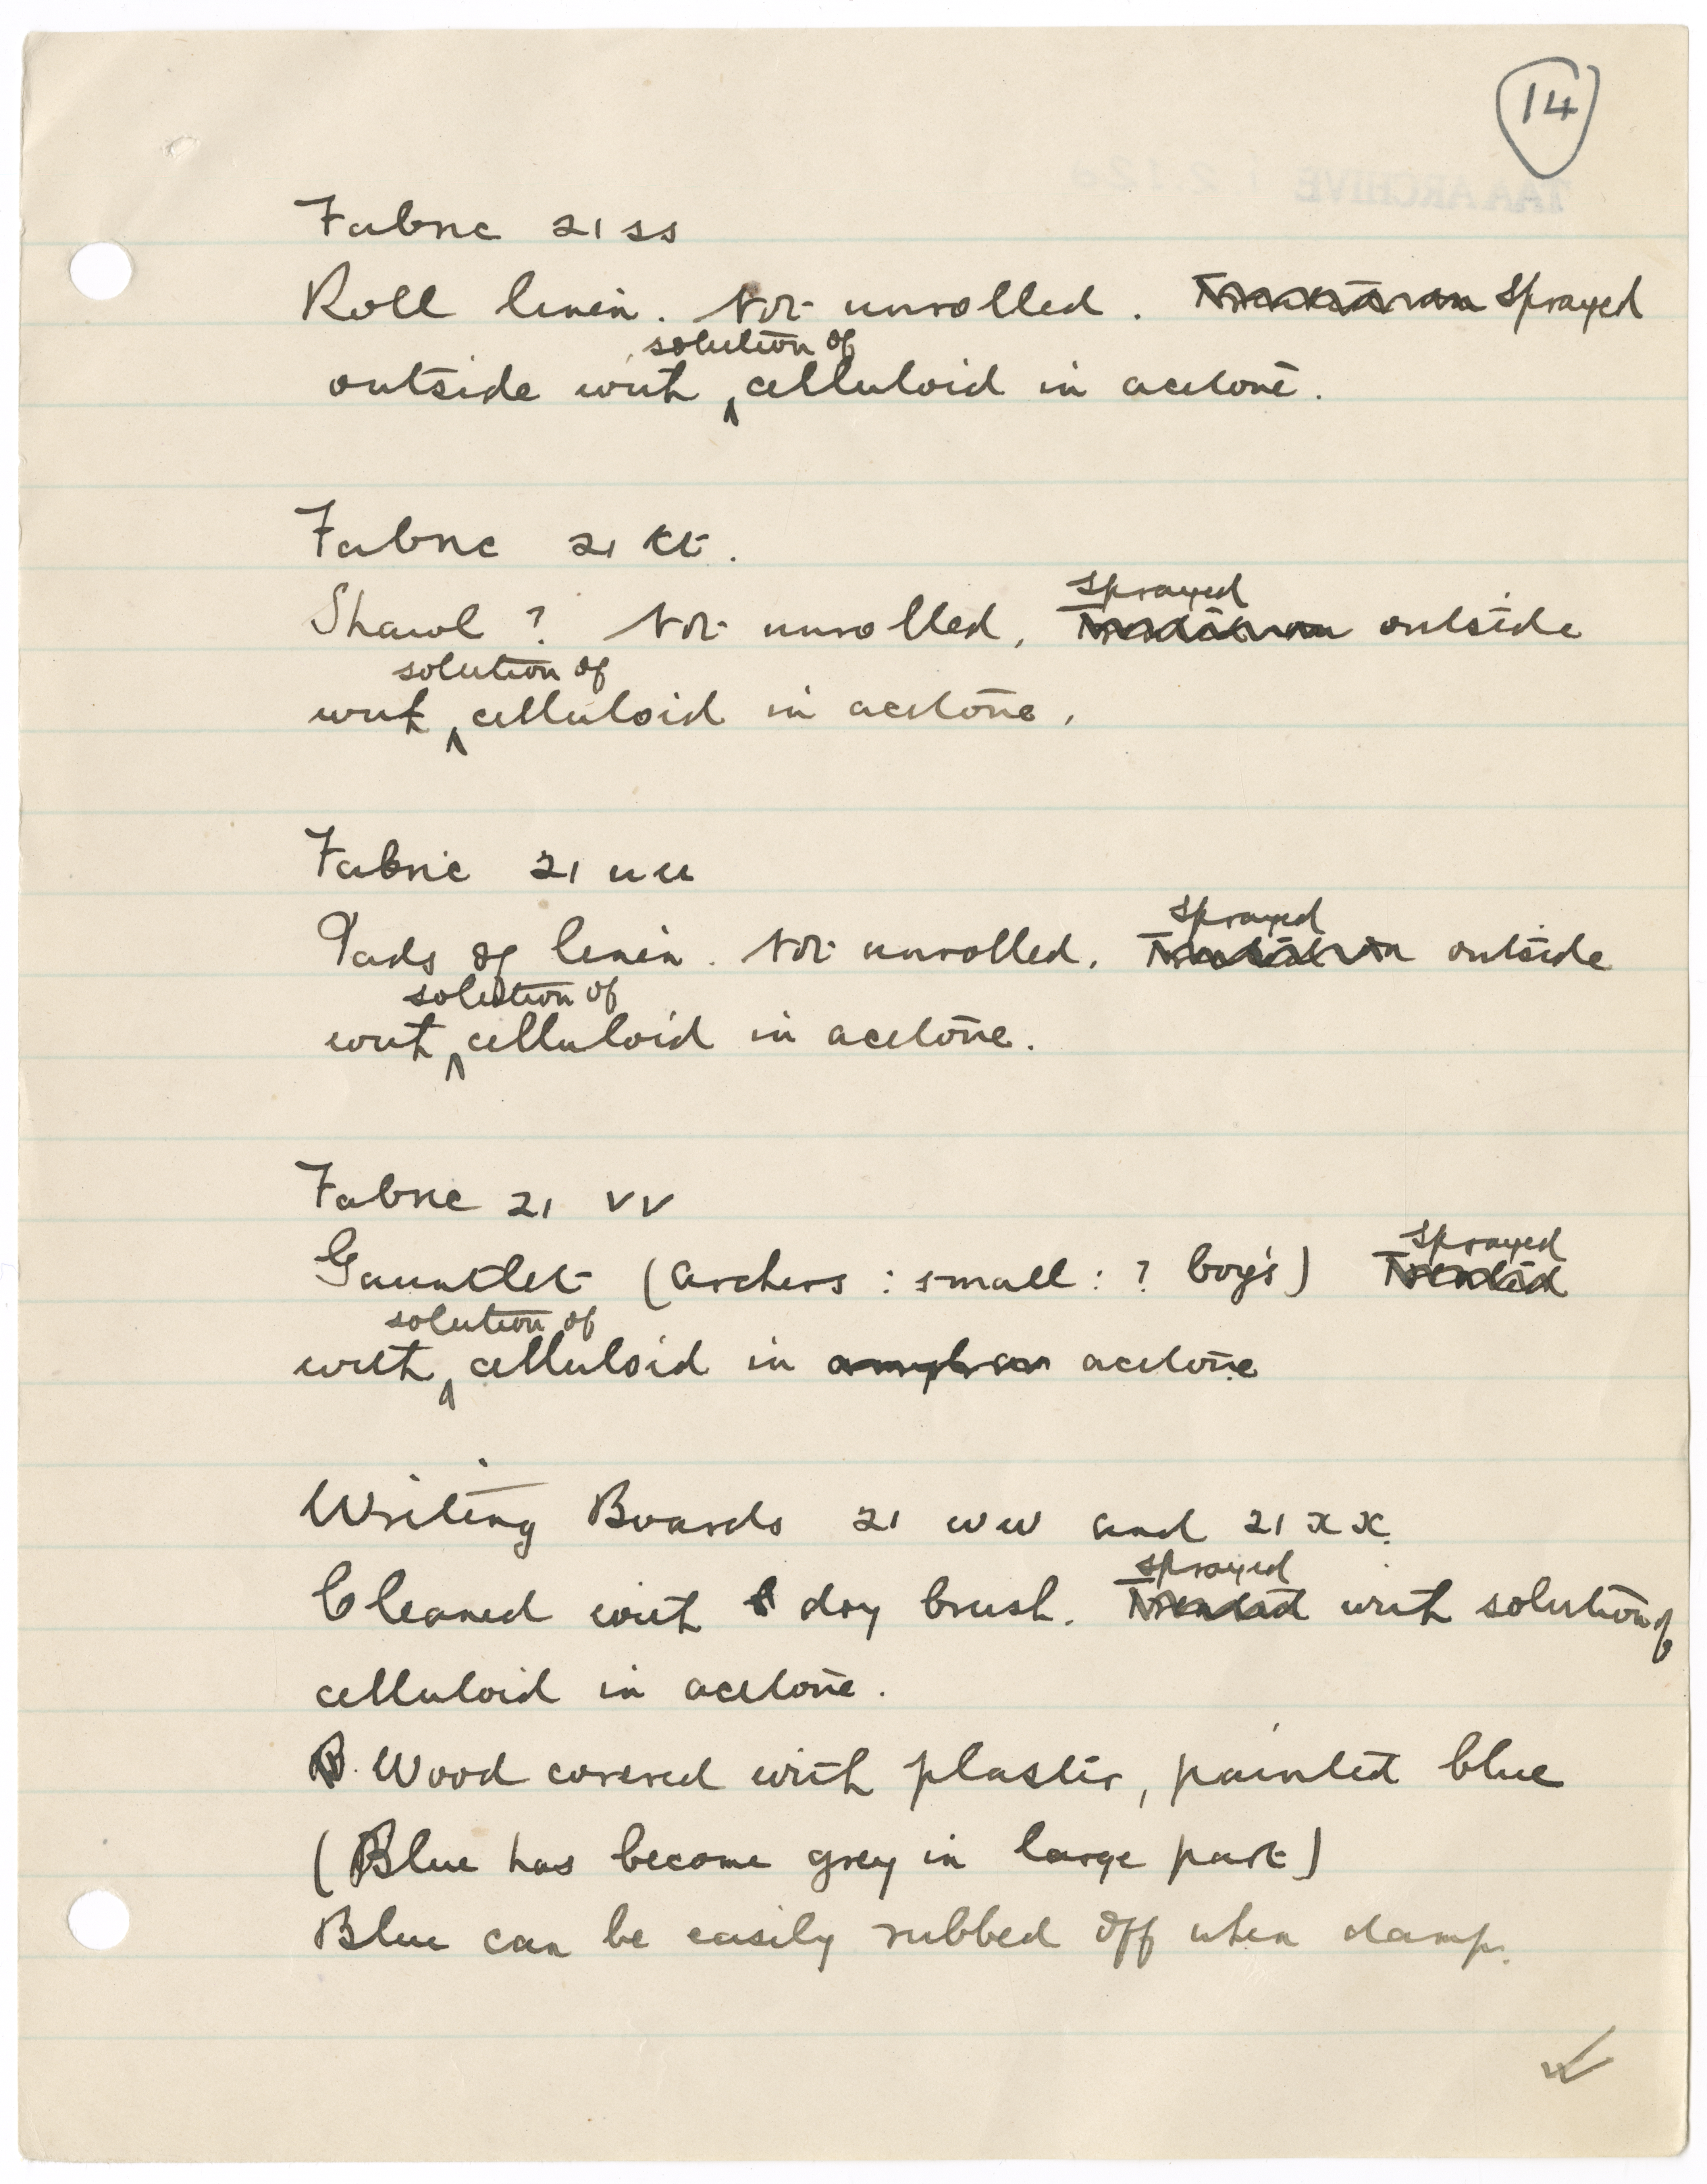 14
TAA ARCHIVE i 2.12a
Fabric 21 ss
Roll linen. Not unrolled. Sprayed
solution of
outside with ^ celluloid in acetone.
Fabric 21 tt.
sprayed
Shawl? Not unrolled. outside
solution of
with ^ celluloid in acetone.
Fabric 21 uu
sprayed
Pads of linen. Not unrolled. outside
solution of
with ^ celluloid in acetone.
Fabric 21 vv
sprayed
Gauntlet (archers : small : ? boy's) Treated
solution of
with ^ celluloid in acetone
Writing Boards 21 ww and 21 xx.
sprayed
Cleaned with dry brush. Treated with solution of
celluloid in acetone.
Wood covered with plaster, painted blue
(Blue has become grey in large part)
Blue can be easily rubbed off when damp.